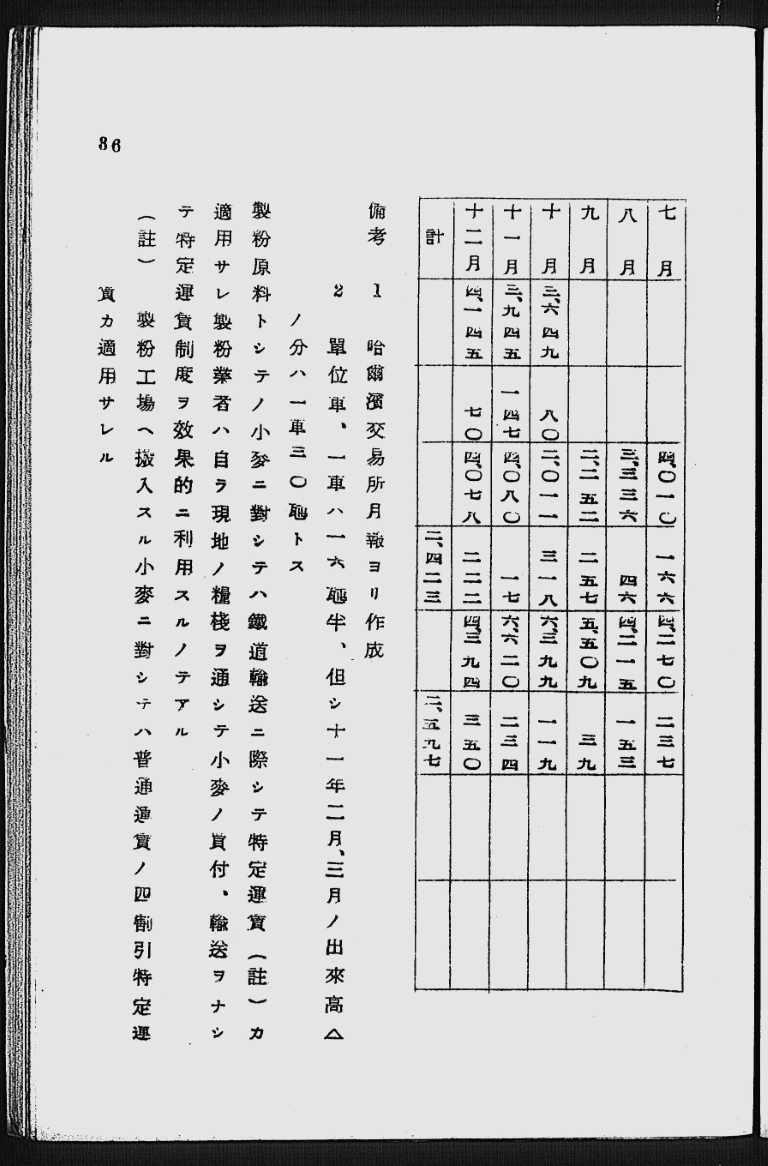 86
七月 四、〇一〇 一六六 四、二七〇 二三七
八月 三、三三六 四六 四、二一五 一五三
九月 二、二五二 二五七 五、五〇九 三九
十月 三、六四九 八〇 二、〇一一 三一八 六、三九九 一一九
十一月 三、九四五 一四七 四、〇八〇 一七 六、六二〇 二三四
十二月 四、一四五 七〇 四、〇七八 二二二 四、三九四 三五〇
計 二、四二三 二、五九七
備考 1 哈爾濱交易所月報ヨリ作成
2 單位車、一車ハ一六瓲半、但シ十一年二月、三月ノ出來高△
ノ分ハ一車三〇瓲トス
製粉原料トシテノ小麥ニ對シテハ鐵道輸送ニ際シテ特定運賃(註)カ
適用サレ製粉業者ハ自ラ現地ノ糧棧ヲ通シテ小麥ノ買付、輸送ヲナシ
テ特定運賃制度ヲ效果的ニ利用スルノテアル
(註) 製粉工場ヘ搬入スル小麥ニ對シテハ普通運賃ノ四割引特定運
賃カ適用サレル